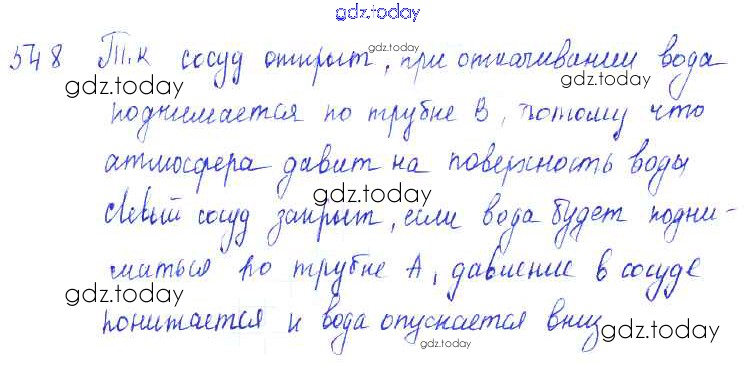 gdz.today
548 Т.к сосуд открыт, при откачивании вода
gdz.today
gdz.today
gdz.today
поднимается по трубке В, потому что
атмосфера давит на поверхность воды
gdz.today
Левый сосуд закрыт, если вода будет подни-
маться по трубке А, давление в сосуде
gdz.today
понижается и вода опускается вниз
gdz.today
gdz.today